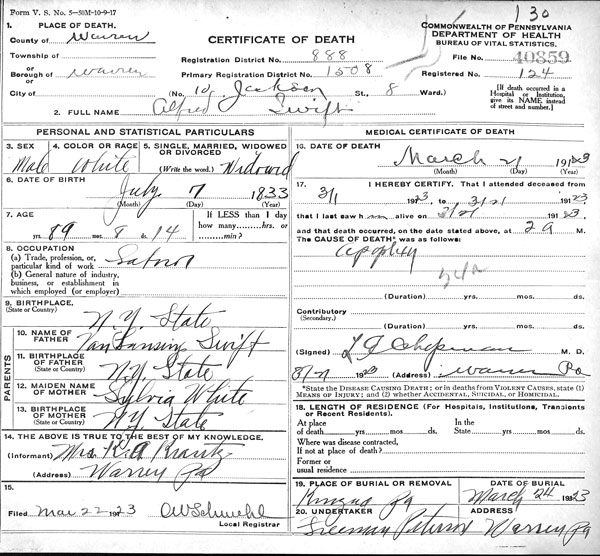 Form V. S. No. 5—50M-10-9-17
130
1. PLACE OF DEATH.
County of Warren
Township of
or
Borough of Warren
or
City of
CERTIFICATE OF DEATH
Registration District No. 888
Primary Registration District No. 1508
(No. 10, Jackson St., 8 Ward.)
COMMONWEALTH OF PENNSYLVANIA
DEPARTMENT OF HEALTH
BUREAU OF VITAL STATISTICS.
File No. 40859
Registered No. 124
[If death occurred in a
Hospital or Institution,
give its NAME instead
of street and number.]
2. FULL NAME Alfred Swift
PERSONAL AND STATISTICAL PARTICULARS
3. SEX
Male
4. COLOR OR RACE
White
5. SINGLE, MARRIED, WIDOWED
OR DIVORCED
(Write the word.) Widowed
6. DATE OF BIRTH
July 7 1833
(Month) (Day) (Year)
7. AGE
yrs. 89 mos. 8 ds. 14
If LESS than 1 day
how many hrs. or
min.?
8. OCCUPATION
(a) Trade, profession, or
particular kind of work
(b) General nature of industry,
business, or establishment in
which employed (or employer)
9. BIRTHPLACE
(State or Country)
N.Y. State
PARENTS
10. NAME OF
FATHER
VanLansing Swift
11. BIRTHPLACE
OF FATHER
(State or Country)
N.Y. State
12. MAIDEN NAME
OF MOTHER
Sylvia White
13. BIRTHPLACE
OF MOTHER
(State or Country)
N.Y. State
14. THE ABOVE IS TRUE TO THE BEST OF MY KNOWLEDGE.
(Informant) Mrs. K.A. Krantz
(Address) Warren Pa
15.
Filed Mar 22 1923
Local Registrar
MEDICAL CERTIFICATE OF DEATH
16. DATE OF DEATH
March 21 1923
(Month) (Day) (Year)
17. I HEREBY CERTIFY, That I attended deceased from
3/1 1923, to 3/21 1923
that I last saw him alive on 3/21 1923,
and that death occurred, on the date stated above, at 2 a M.
The CAUSE OF DEATH* was as follows:
apoplexy
(Duration) yrs. mos. ds.
Contributory
(Secondary.)
(Duration) yrs. mos. ds.
(Signed) Chapman M. D.
1923 (Address) Warren Pa
*State the DISEASE CAUSING DEATH; or in deaths from VIOLENT CAUSES, state (1)
MEANS OF INJURY; and (2) whether ACCIDENTAL, SUICIDAL, or HOMICIDAL.
18. LENGTH OF RESIDENCE (For Hospitals, Institutions, Transients
or Recent Residents).
At place
of death yrs. mos. ds.
In the
State yrs. mos. ds.
Where was disease contracted,
If not at place of death?
Former or
usual residence
19. PLACE OF BURIAL OR REMOVAL
Kinzua Pa
DATE OF BURIAL
March 24 1923
20. UNDERTAKER
Peterson
ADDRESS
Warren Pa